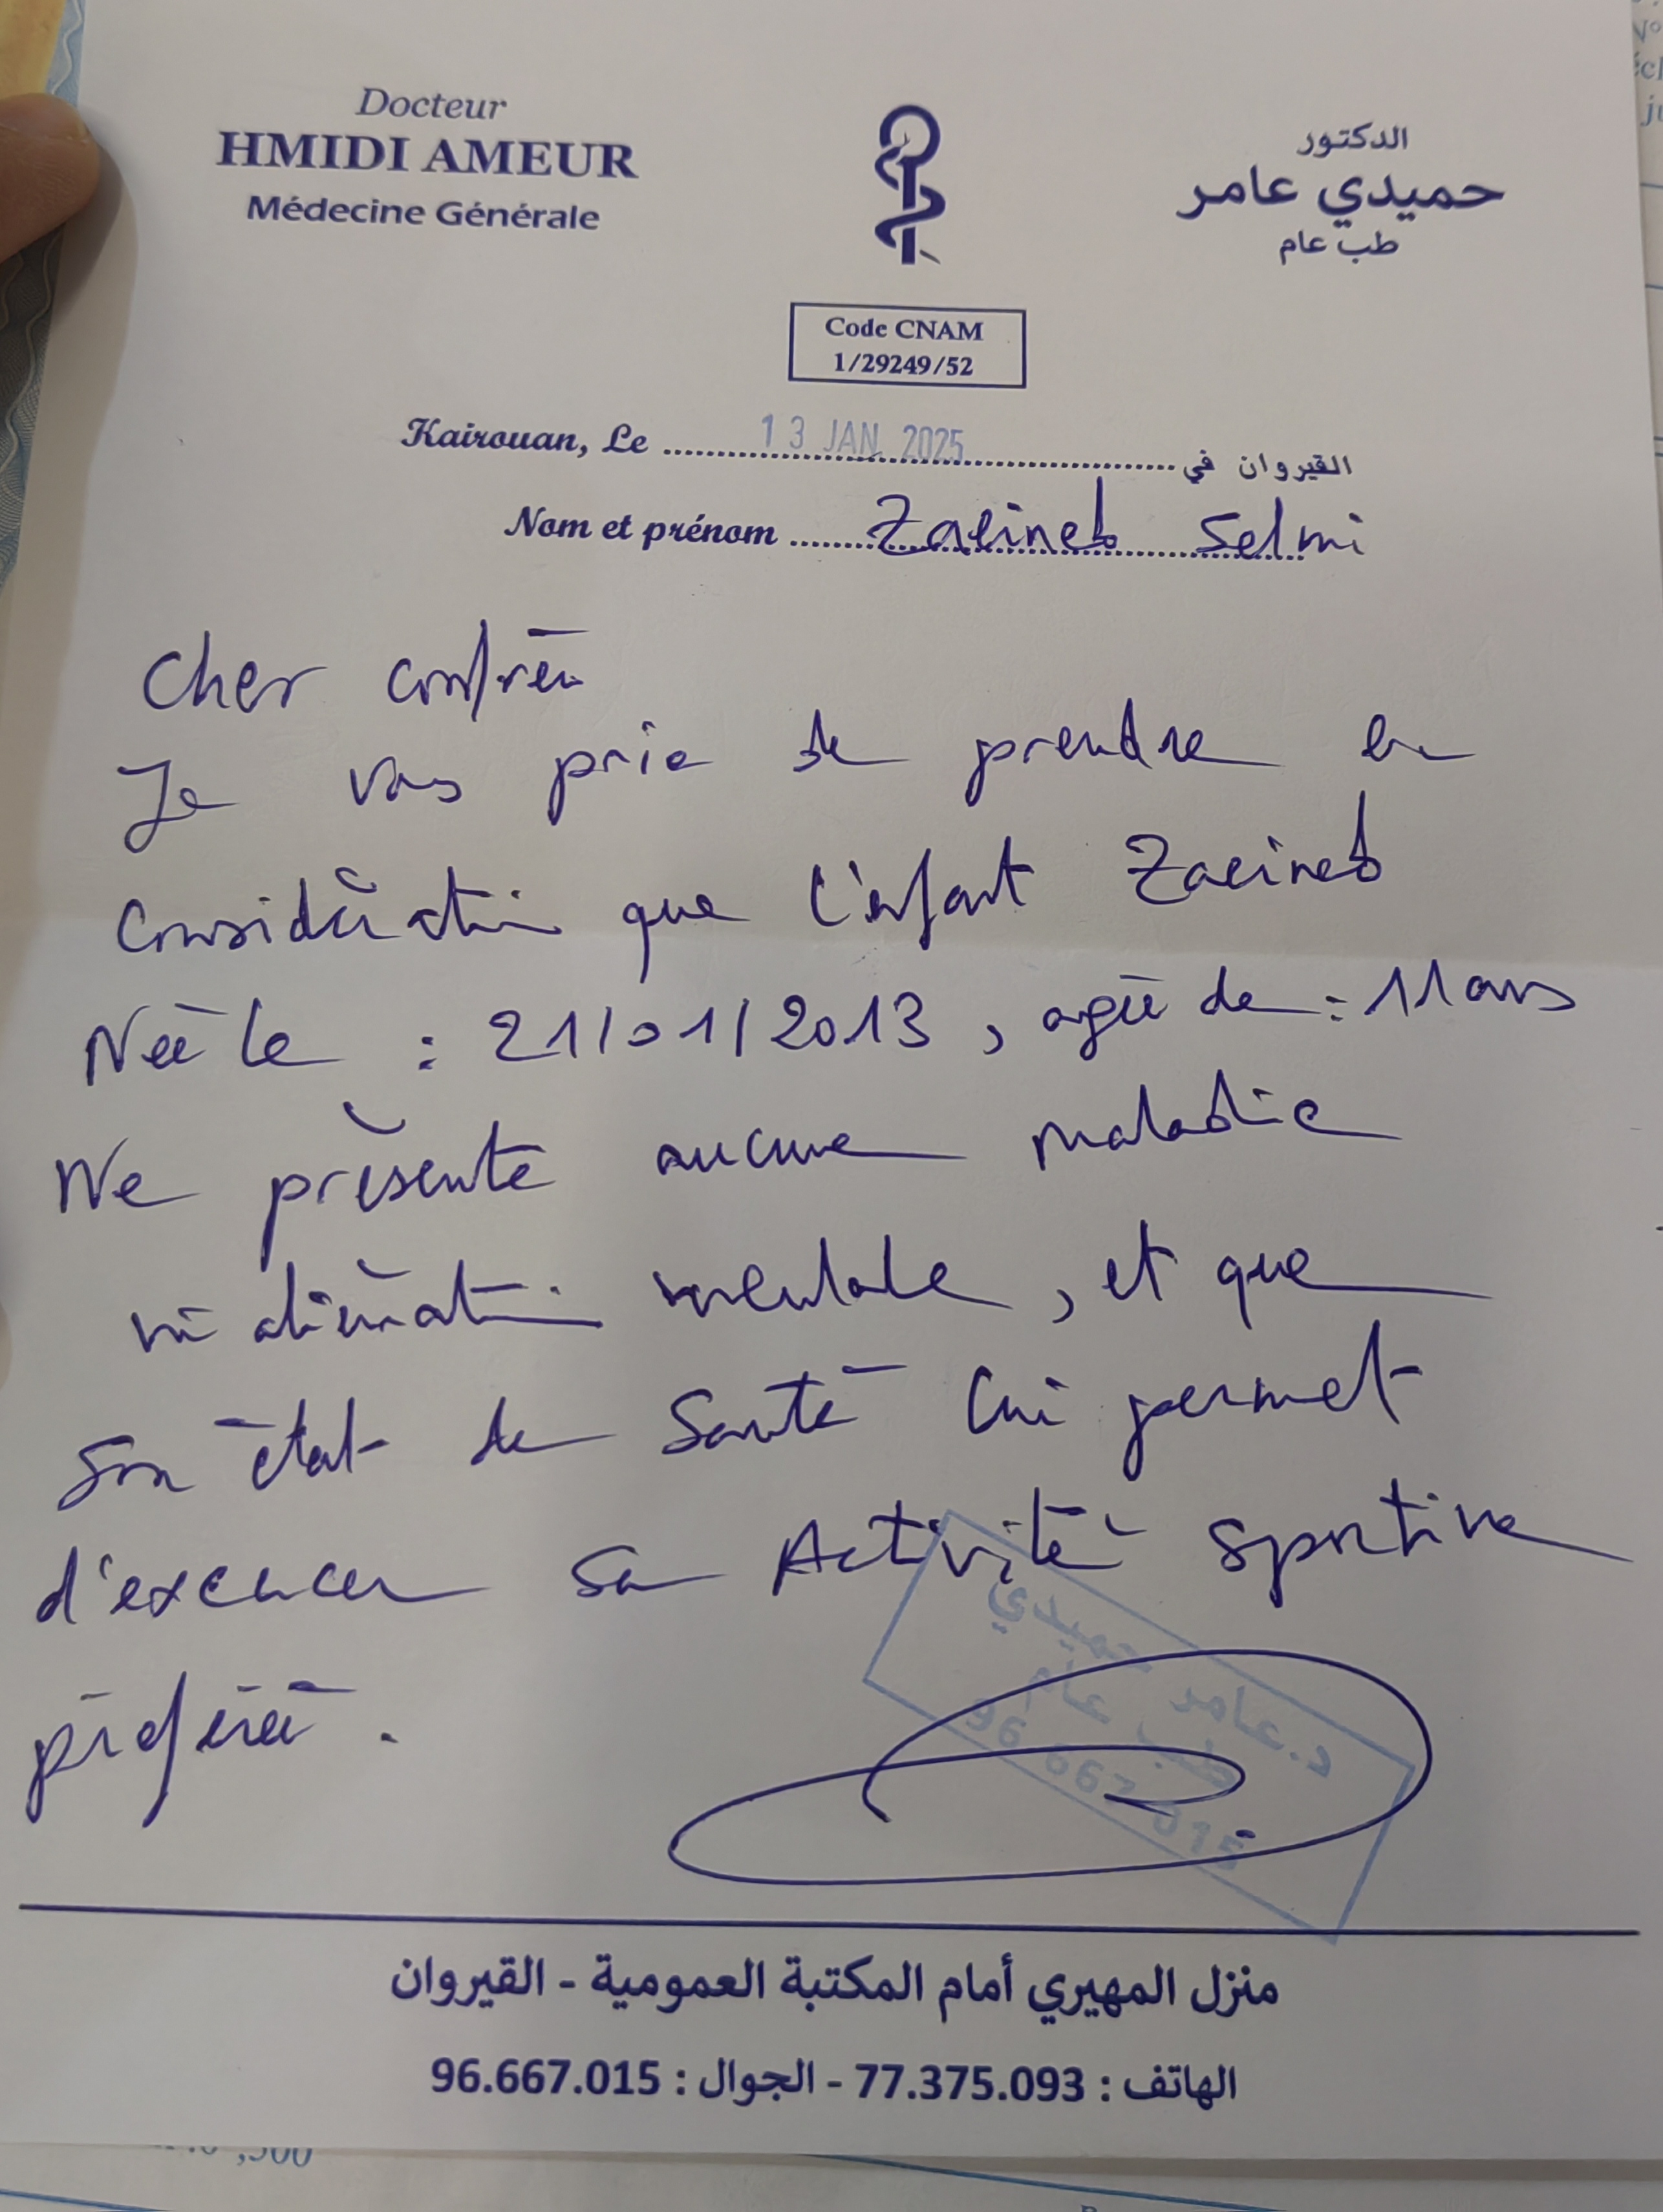 Docteur
HMIDI AMEUR
Médecine Générale
الدكتور
حميدي عامر
طب عام
Code CNAM
1/29249/52
Kairouan, Le 13 JAN 2025 القيروان في
Nom et prénom Zaeineb Selmi
Cher confrère
Je vous prie de prendre en
Considération que l'enfant Zaeineb
Née le : 21/01/2013, agée de : 11 ans
Ne présente aucune maladie
ni aliénation mentale, et que
Son état de Santé lui permet
d'exercer sa Activité sportive
préférée.
د.عامر حميدي
طب عام
96 667 015
منزل المهيري أمام المكتبة العمومية - القيروان
الهاتف : 77.375.093 - الجوال : 96.667.015